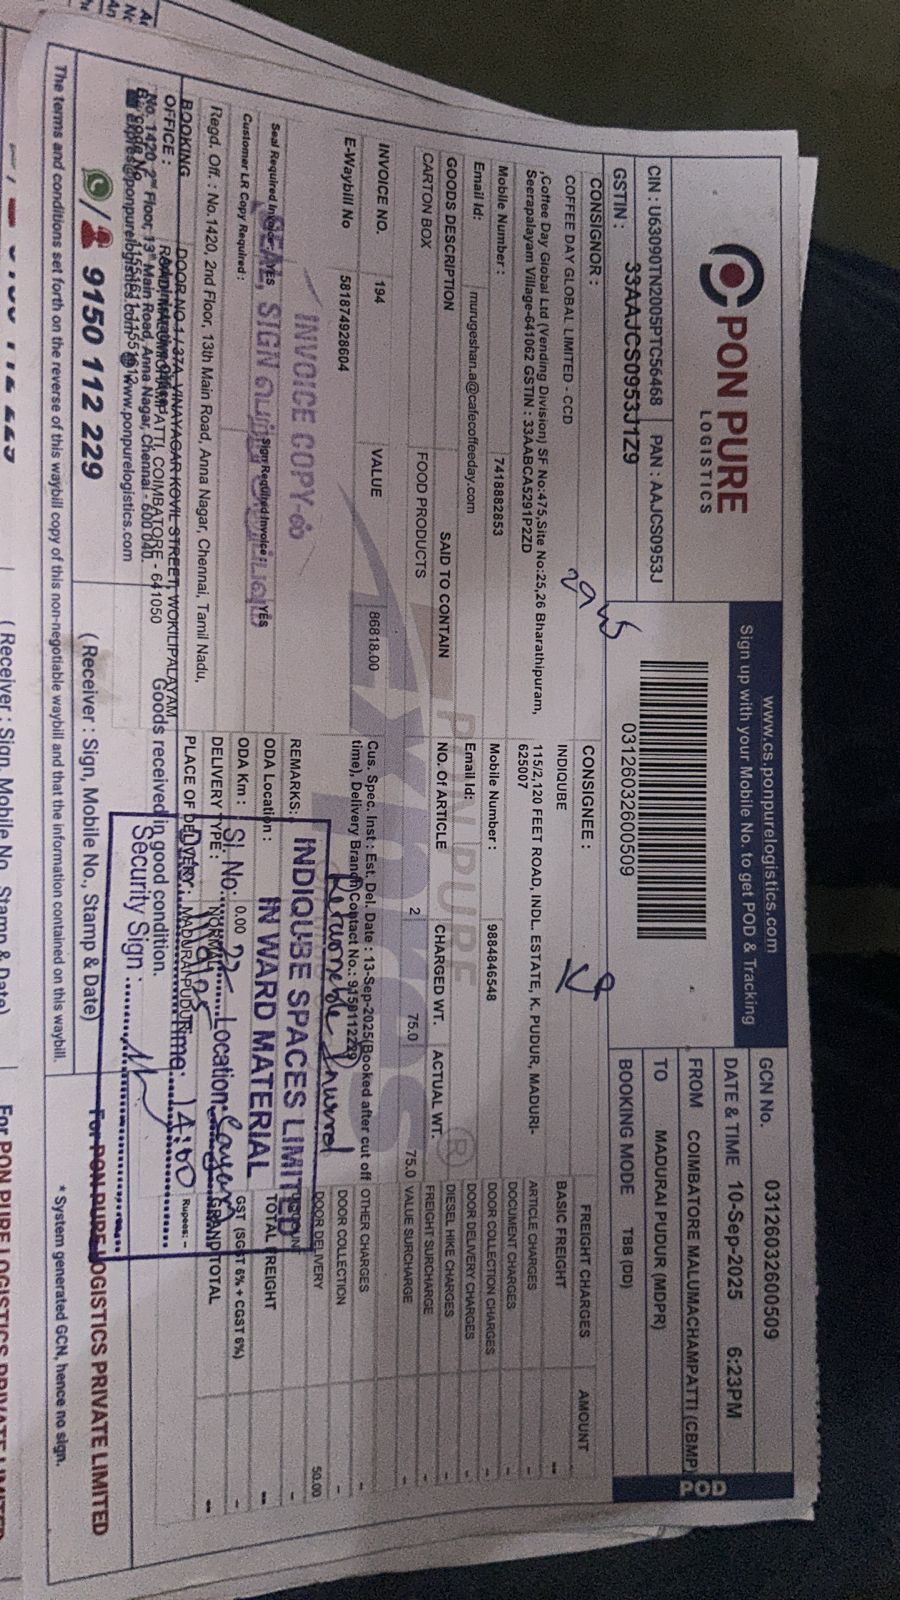 PON PURE
LOGISTICS
www.cs.ponpurelogistics.com
Sign up with your Mobile No. to get POD & Tracking
CIN : U63090TN2005PTC56468 PAN : AAJCS0953J
GSTIN : 33AAJCS0953J1Z9
03126032600509
GCN No. 03126032600509
DATE & TIME 10-Sep-2025 6:23PM
FROM COIMBATORE MALUMACHAMPATTI (CBMP)
TO MADURAI PUDUR (MDPR)
BOOKING MODE TBB (DD)
POD
CONSIGNOR :
COFFEE DAY GLOBAL LIMITED - CCD
,Coffee Day Global Ltd (Vending Division) SF No:475,Site No:25,26 Bharathipuram,
Seerapalayam Village-641062 GSTIN : 33AABCA5291P2ZD
Mobile Number : 7418882853
Email Id: murugeshan.a@cafecoffeeday.com
CONSIGNEE :
INDIQUBE
115/2,120 FEET ROAD, INDL. ESTATE, K. PUDUR, MADURI-
625007
Mobile Number : 9884846548
Email Id:
GOODS DESCRIPTION SAID TO CONTAIN NO. Of ARTICLE CHARGED WT. ACTUAL WT.
CARTON BOX FOOD PRODUCTS 2 75.0 75.0
INVOICE NO. 194 VALUE 86818.00
E-Waybill No 581874928604
Cus. Spec. Inst : Est. Del. Date : 13-Sep-2025(Booked after cut off
time), Delivery Branch Contact No.: 9150112229
REMARKS:
ODA Location :
ODA Km : 0.00
DELIVERY TYPE : NORMAL
PLACE OF DELIVERY : MADURAI PUDUR
FREIGHT CHARGES AMOUNT
BASIC FREIGHT --
ARTICLE CHARGES -
DOCUMENT CHARGES -
DOOR COLLECTION CHARGES -
DOOR DELIVERY CHARGES -
DIESEL HIKE CHARGES -
FREIGHT SURCHARGE -
VALUE SURCHARGE -
OTHER CHARGES -
DOOR COLLECTION -
DOOR DELIVERY 50.00
TOTAL FREIGHT --
GST (SGST 6% + CGST 6%) -
GRAND TOTAL --
Rupees: -
INVOICE COPY-ல்
SEAL, SIGN பெற
Seal Required Invoice : YES Sign Required Invoice : YES
Customer LR Copy Required :
Regd. Off. : No.1420, 2nd Floor, 13th Main Road, Anna Nagar, Chennai, Tamil Nadu,
BOOKING
OFFICE :
DOOR NO 1 / 37A, VINAYAGAR KOVIL STREET, WOKILIPALAYAM
ROAD, MALUMICHAMPATTI, COIMBATORE - 641050
No. 1420, 2nd Floor, 13th Main Road, Anna Nagar, Chennai - 600 040.
www.ponpurelogistics.com
9150 112 229
Goods received in good condition.
( Receiver : Sign, Mobile No., Stamp & Date)
INDIQUBE SPACES LIMITED
IN WARD MATERIAL
Sl. No: 22 Location:
Time: 14:00
Security Sign :
For PON PURE LOGISTICS PRIVATE LIMITED
The terms and conditions set forth on the reverse of this waybill copy of this non-negotiable waybill and that the information contained on this waybill.
* System generated GCN, hence no sign.
( Receiver : Sign, Mobile No., Stamp & Date)
For PON PURE LOGISTICS PRIVATE LIMITED